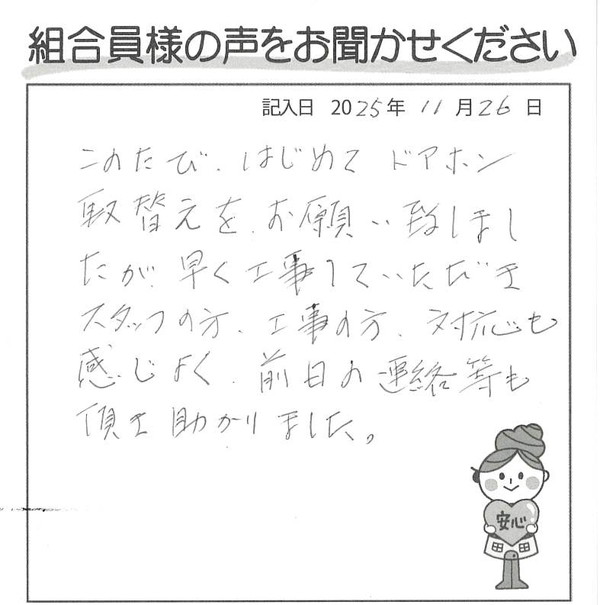 組合員様の声をお聞かせください
記入日 2025年 11月26日
このたび、はじめて ドアホン
取替えを、お願い致しまし
たが、早く工事していただき
スタッフの方、工事の方、対応も
感じよく、前日の連絡等も
頂き助かりました。
安心